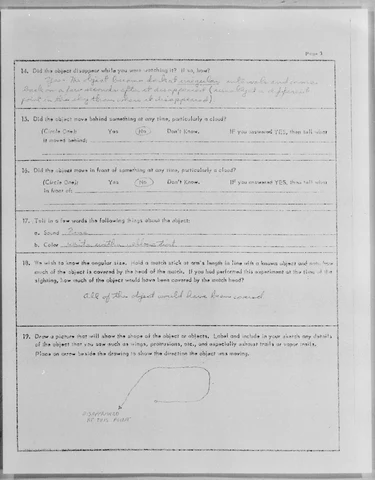 Page 3
14. Did the object disappear while you were watching it? If so, how?
Yes - The object became somewhat
back in a few seconds after at disappearance ( at a different
point in the sky than where it disappeared)
15. Did the object move behind something at any time, particularly a cloud?
(Circle One): Yes No Don't Know. IF you answered YES, then tell what
it moved behind:
16. Did the object move in front of something at any time, particularly a cloud?
(Circle One): Yes No Don't Know. IF you answered YES, then tell what
in front of:
17. Tell in a few words the following things about the object:
a. Sound None
b. Color White with
18. We wish to know the angular size. Hold a match stick at arm's length in line with a known object and note how
much of the object is covered by the head of the match. If you had performed this experiment at the time of the
sighting, how much of the object would have been covered by the match head?
All of the object would have been covered
19. Draw a picture that will show the shape of the object or objects. Label and include in your sketch any details
of the object that you saw such as wings, protrusions, etc., and especially exhaust trails or vapor trails.
Place an arrow beside the drawing to show the direction the object was moving.
AT THIS POINT